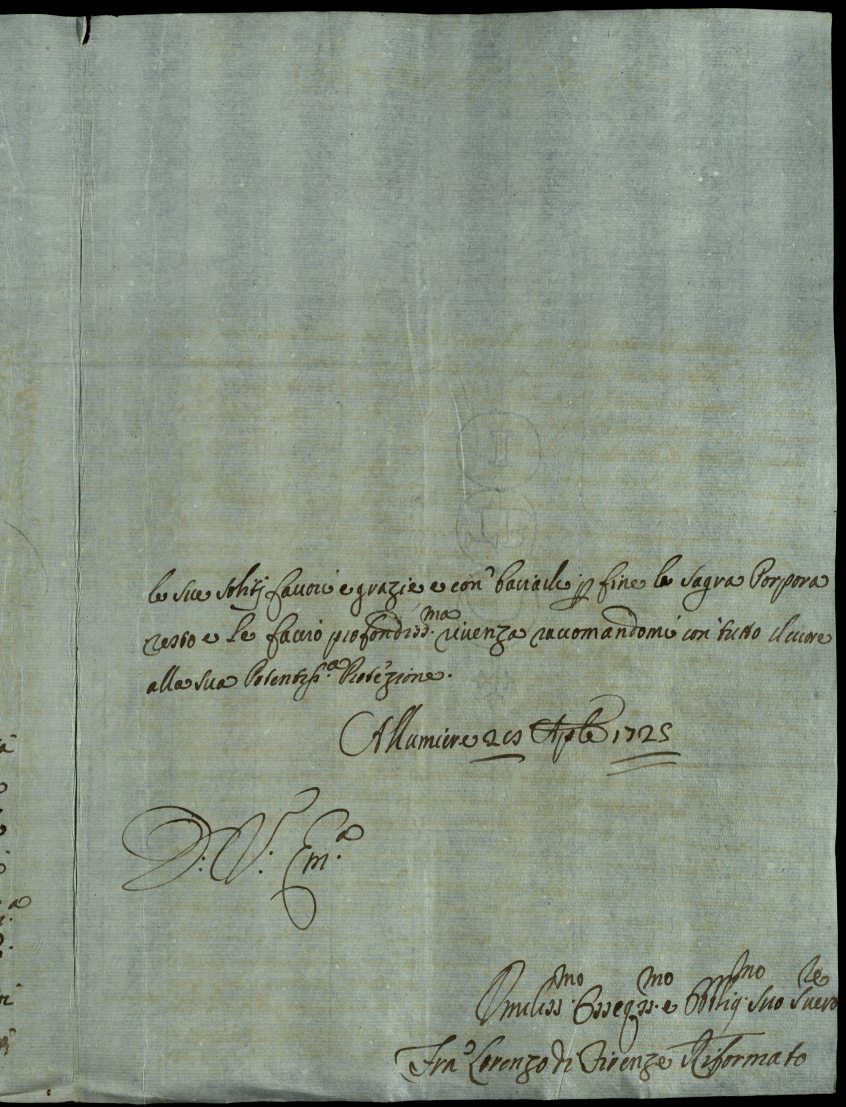 le sue soliti favori e grazie e con baciarle p fine la sagra Porpora
resto e le faccio profondiss.ma riverenza raccomandomi con tutto il cuore
alla sua Potentiss.a Protezione.
Allumiere 20 Aple 1725
D: V: Em.a
Umiliss.mo Osseqss.mo e Obblig.mo suo Serv.re
Fra Lorenzo di Firenze Riformato